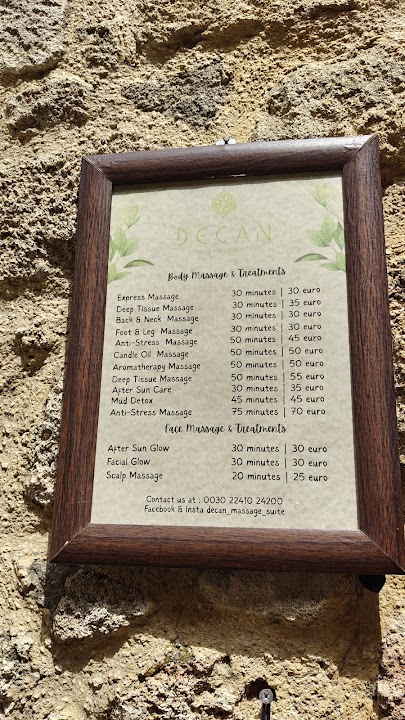 DECAN
Body Massage & Treatments
Express Massage 30 minutes | 30 euro
Deep Tissue Massage 30 minutes | 35 euro
Back & Neck Massage 30 minutes | 30 euro
Foot & Leg Massage 30 minutes | 30 euro
Anti-Stress Massage 50 minutes | 45 euro
Candle Oil Massage 50 minutes | 50 euro
Aromatherapy Massage 50 minutes | 50 euro
Deep Tissue Massage 50 minutes | 55 euro
After Sun Care 30 minutes | 35 euro
Mud Detox 45 minutes | 45 euro
Anti-Stress Massage 75 minutes | 70 euro
Face Massage & Treatments
After Sun Glow 30 minutes | 30 euro
Facial Glow 30 minutes | 30 euro
Scalp Massage 20 minutes | 25 euro
Contact us at : 0030 22410 24200
Facebook & Insta decan_massage_suite